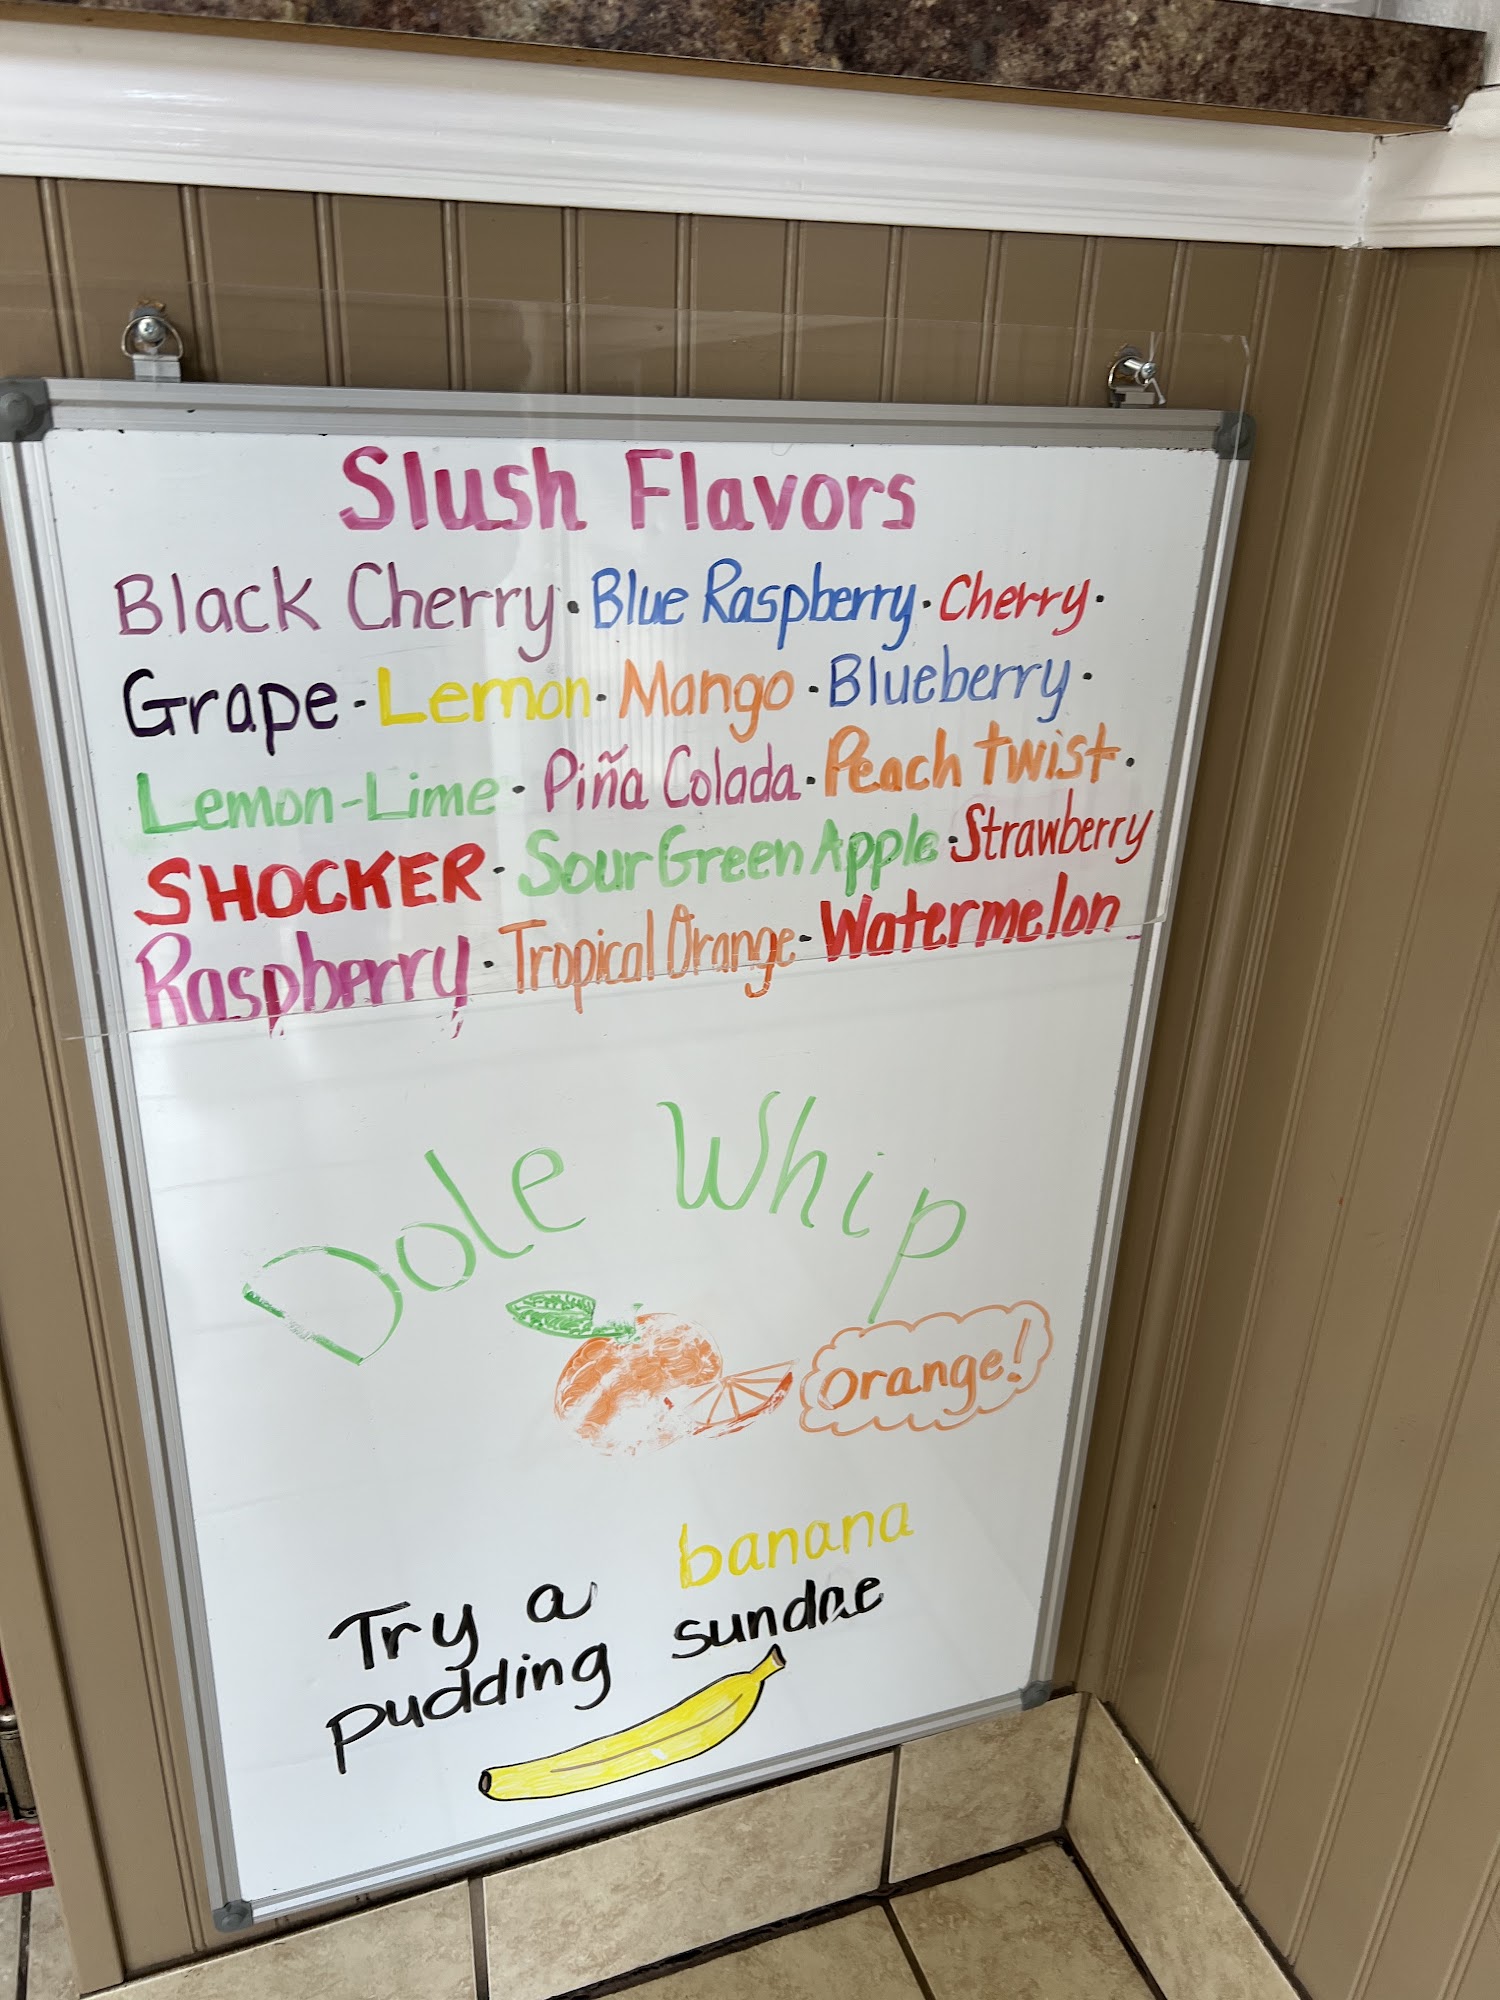 Slush Flavors
Black Cherry · Blue Raspberry · Cherry ·
Grape · Lemon · Mango · Blueberry ·
Lemon-Lime · Piña Colada · Peach Twist ·
SHOCKER · Sour Green Apple · Strawberry
Raspberry · Tropical Orange · Watermelon
Dole Whip
Orange!
Try a banana
pudding sundae